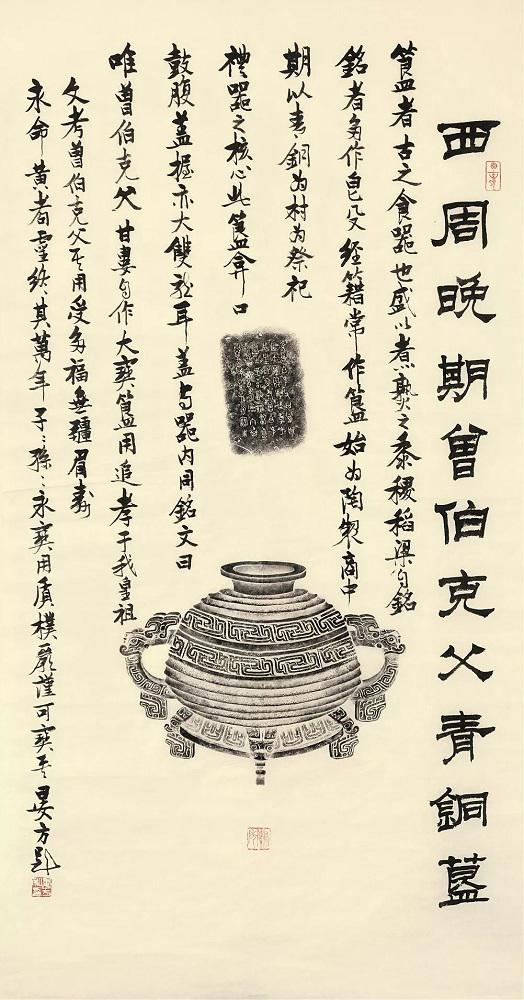 西周晚期曾伯克父青銅簋
簋者古之食器也盛以煮熟之黍稷稻梁自銘
銘者多作皀殳經籍常作簋始为陶製商中
期以青銅为材为祭祀
禮器之核心此簋弇口
鼓腹蓋握亦大雙龍耳蓋与器内用銘文曰
唯曾伯克父甘婁自作大寶簋用追孝于我皇祖
文考曾伯克父其用受多福無疆眉壽
永命黄耇霝終其萬年子:孫:永寶用質樸嚴謹可寶 晏方題